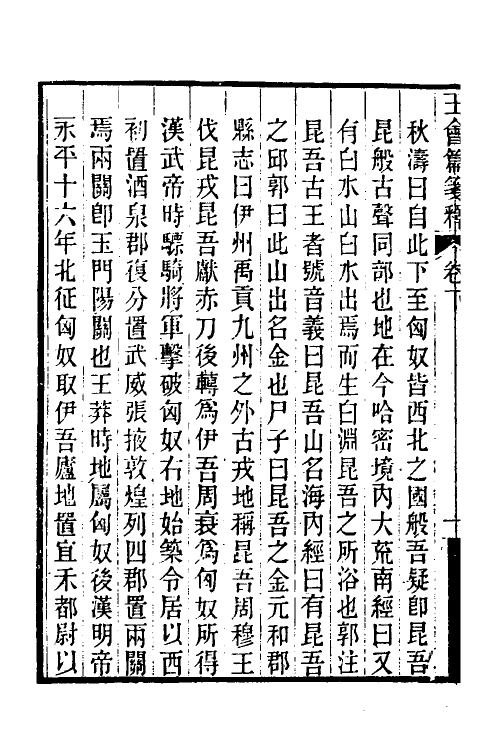 王會篇箋釋 卷下 十
秋濤曰自此下至匈奴皆西北之國般吾疑即昆吾
昆般古聲同部也地在今哈密境內大荒南經曰又
有白水山白水出焉而生白淵昆吾之所浴也郭注
昆吾古王者號音義曰昆吾山名海內經曰有昆吾
之邱郭曰此山出名金也尸子曰昆吾之金元和郡
縣志曰伊州禹貢九州之外古戎地稱昆吾周穆王
伐昆戎昆吾獻赤刀後轉爲伊吾周衰爲匈奴所得
漢武帝時驃騎將軍擊破匈奴右地始築令居以西
初置酒泉郡復分置武威張掖敦煌列四郡置兩關
焉兩關卽玉門陽關也王莽時地屬匈奴後漢明帝
永平十六年北征匈奴取伊吾廬地置宜禾都尉以